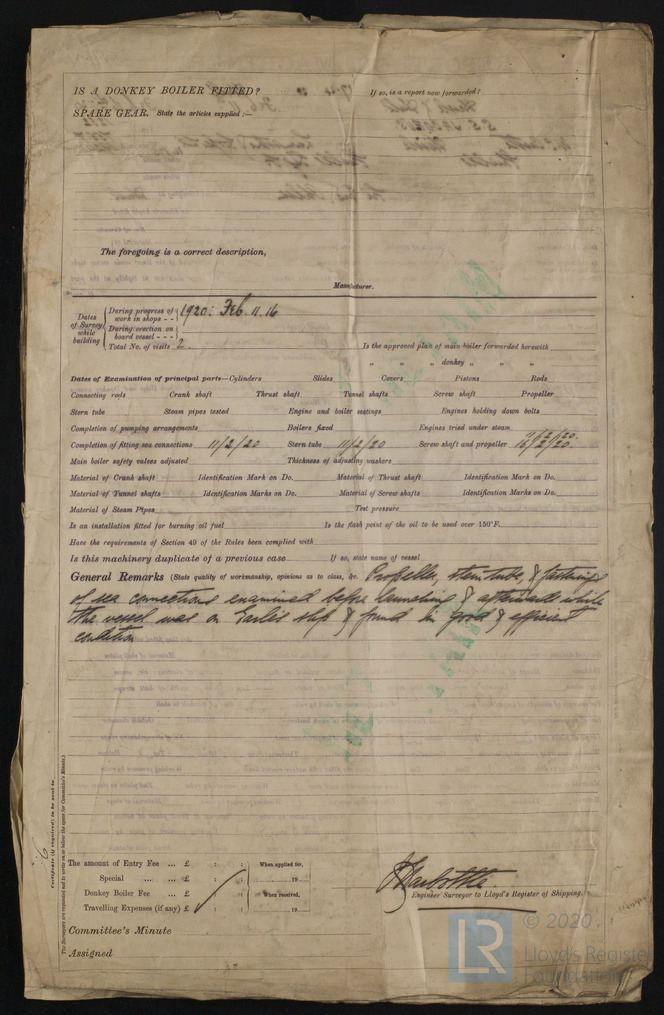 IS A DONKEY BOILER FITTED? If so, is a report now forwarded?
SPARE GEAR. State the articles supplied :—
The foregoing is a correct description,
Manufacturer.
Dates of Survey while building
During progress of work in shops - - 1920: Feb. 11. 16
During erection on board vessel - - -
Total No. of visits 2 Is the approved plan of main boiler forwarded herewith
" " " donkey " " "
Dates of Examination of principal parts—Cylinders Slides Covers Pistons Rods
Connecting rods Crank shaft Thrust shaft Tunnel shafts Screw shaft Propeller
Stern tube Steam pipes tested Engine and boiler seatings Engines holding down bolts
Completion of pumping arrangements Boilers fixed Engines tried under steam
Completion of fitting sea connections 11/2/20 Stern tube 11/2/20 Screw shaft and propeller 11/2/20. 16/2/20
Main boiler safety valves adjusted Thickness of adjusting washers
Material of Crank shaft Identification Mark on Do. Material of Thrust shaft Identification Mark on Do.
Material of Tunnel shafts Identification Marks on Do. Material of Screw shafts Identification Marks on Do.
Material of Steam Pipes Test pressure
Is an installation fitted for burning oil fuel Is the flash point of the oil to be used over 150°F.
Have the requirements of Section 49 of the Rules been complied with
Is this machinery duplicate of a previous case If so, state name of vessel
General Remarks (State quality of workmanship, opinions as to class, &c. Propeller, stern tube, & fastenings
of sea connections examined before launching & afterwards while
the vessel was on Earle's slip & found in good & efficient
condition
Certificate (if required) to be sent to
The Surveyors are requested not to write on or below the space for Committee's Minute.
The amount of Entry Fee ... £ : : When applied for,
Special ... ... £ : : 19
Donkey Boiler Fee ... £ : : When received,
Travelling Expenses (if any) £ : : 19
Engineer Surveyor to Lloyd's Register of Shipping.
Committee's Minute
Assigned
LR © 2020
Lloyd's Register
Foundation